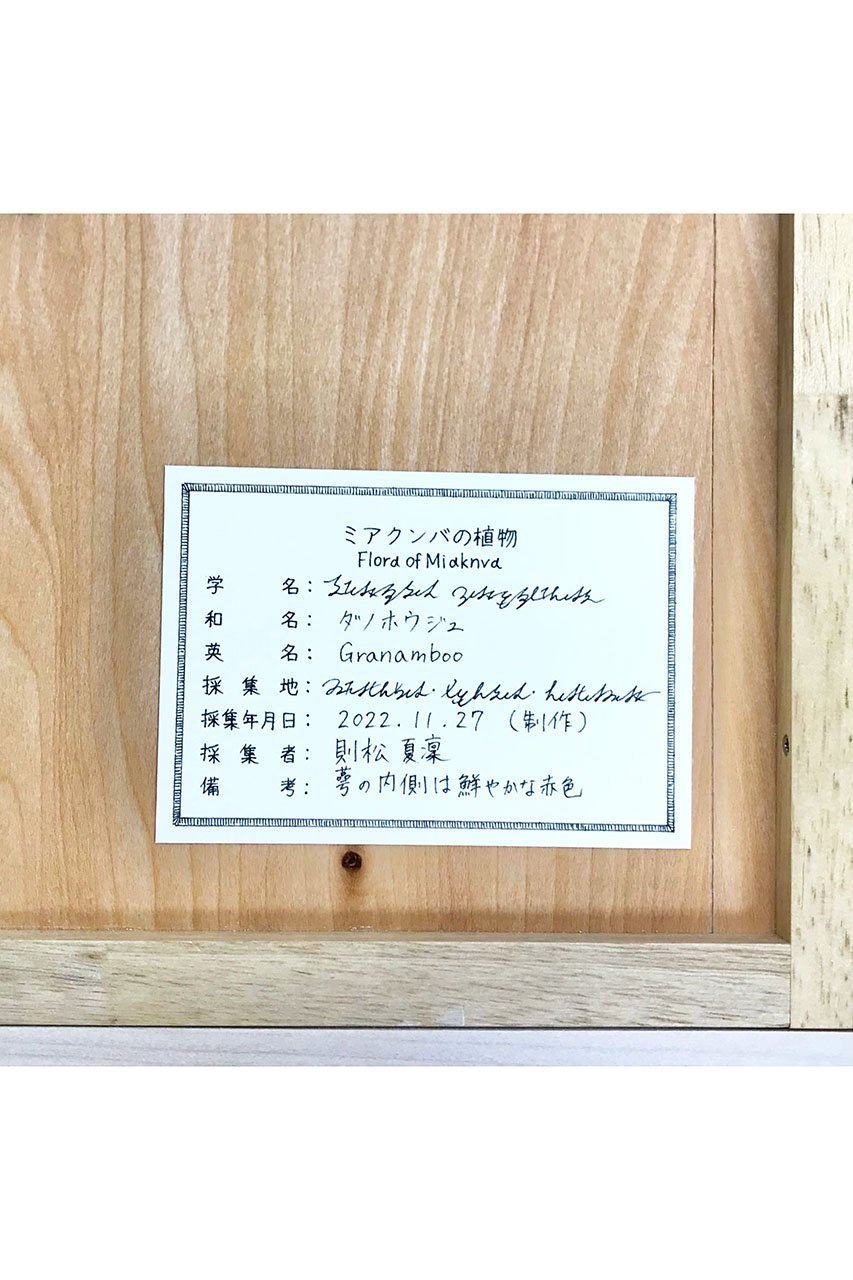 ミアクンバの植物
Flora of Miaknva
学名：
和名：ダノホウジュ
英名：Granamboo
採集地：
採集年月日：2022.11.27（制作）
採集者：則松 夏凜
備考：萼の内側は鮮やかな赤色